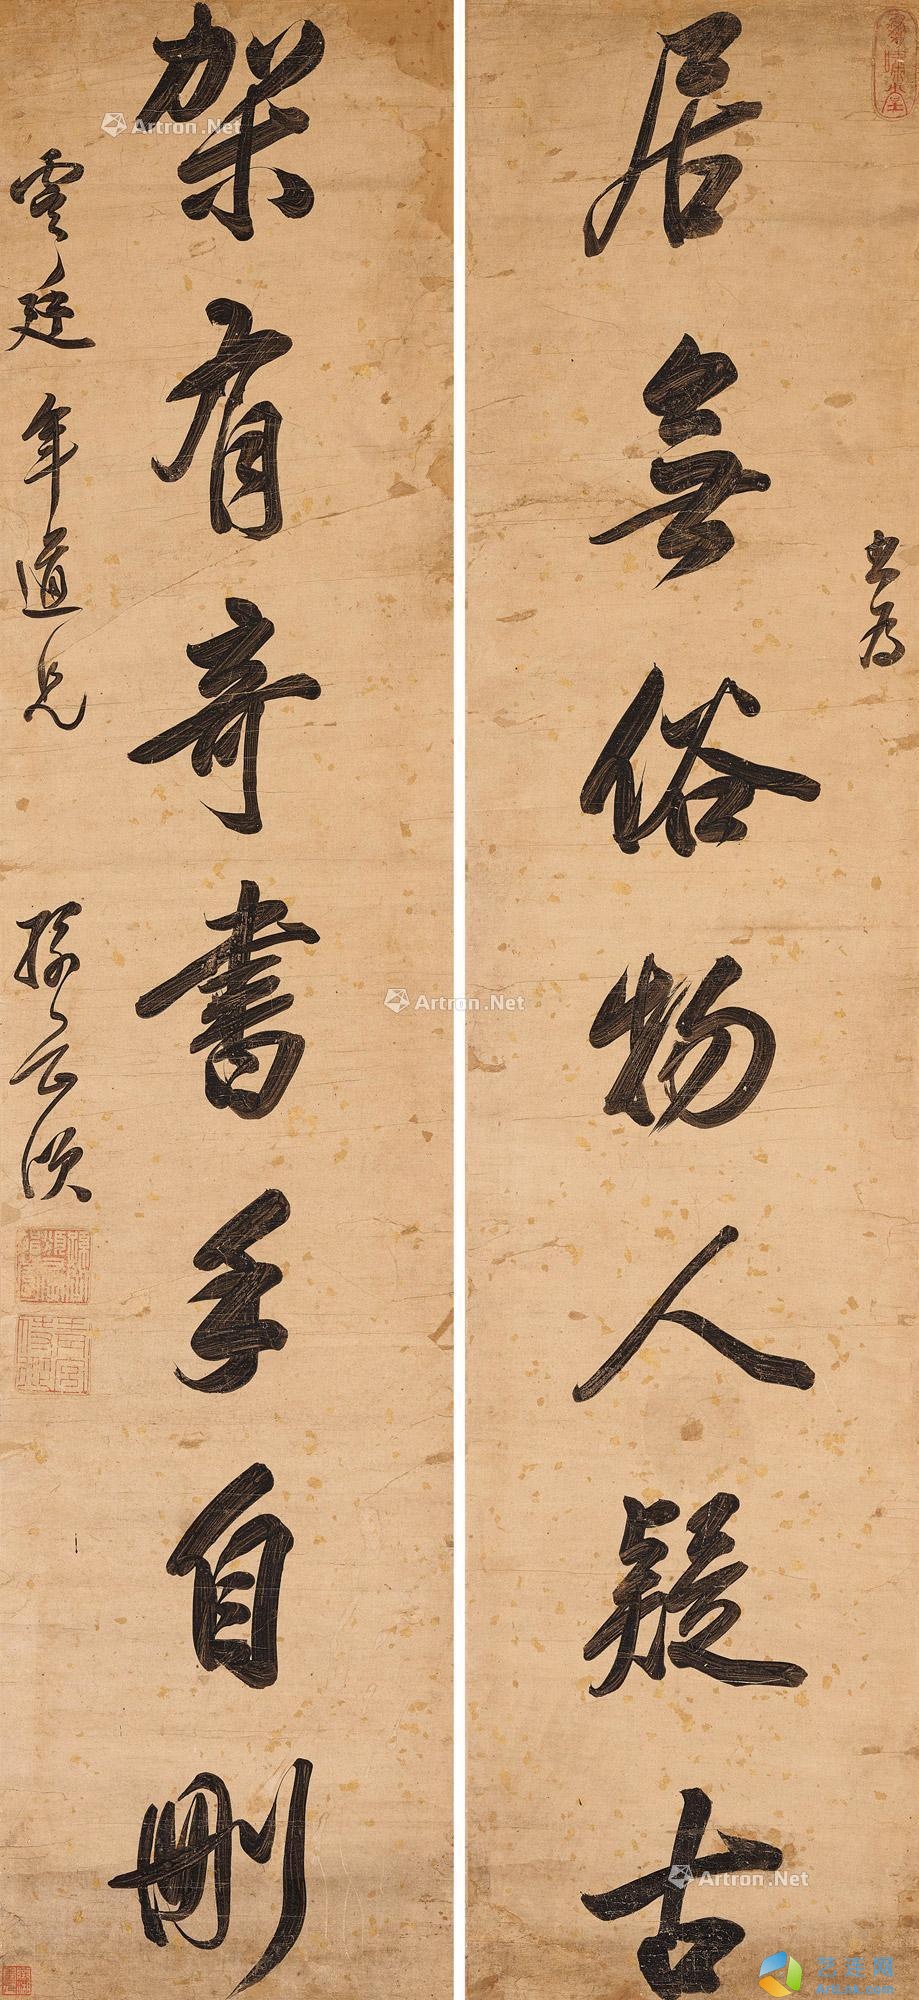 居無俗物人疑古
書為
架有奇書手自刪
雯廷年道兄
孫岳頒
Artron.Net
Artron.Net
Artron.Net